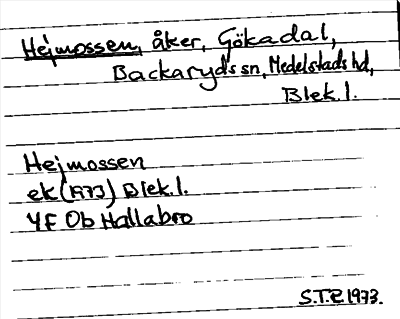 Hejmossen, åker, Gökadal,
Backaryds sn, Medelstads hd,
Blek. l.
Hejmossen
ek (1973) Blek. l.
4F Ob Hallabro
S.T.R 1973.